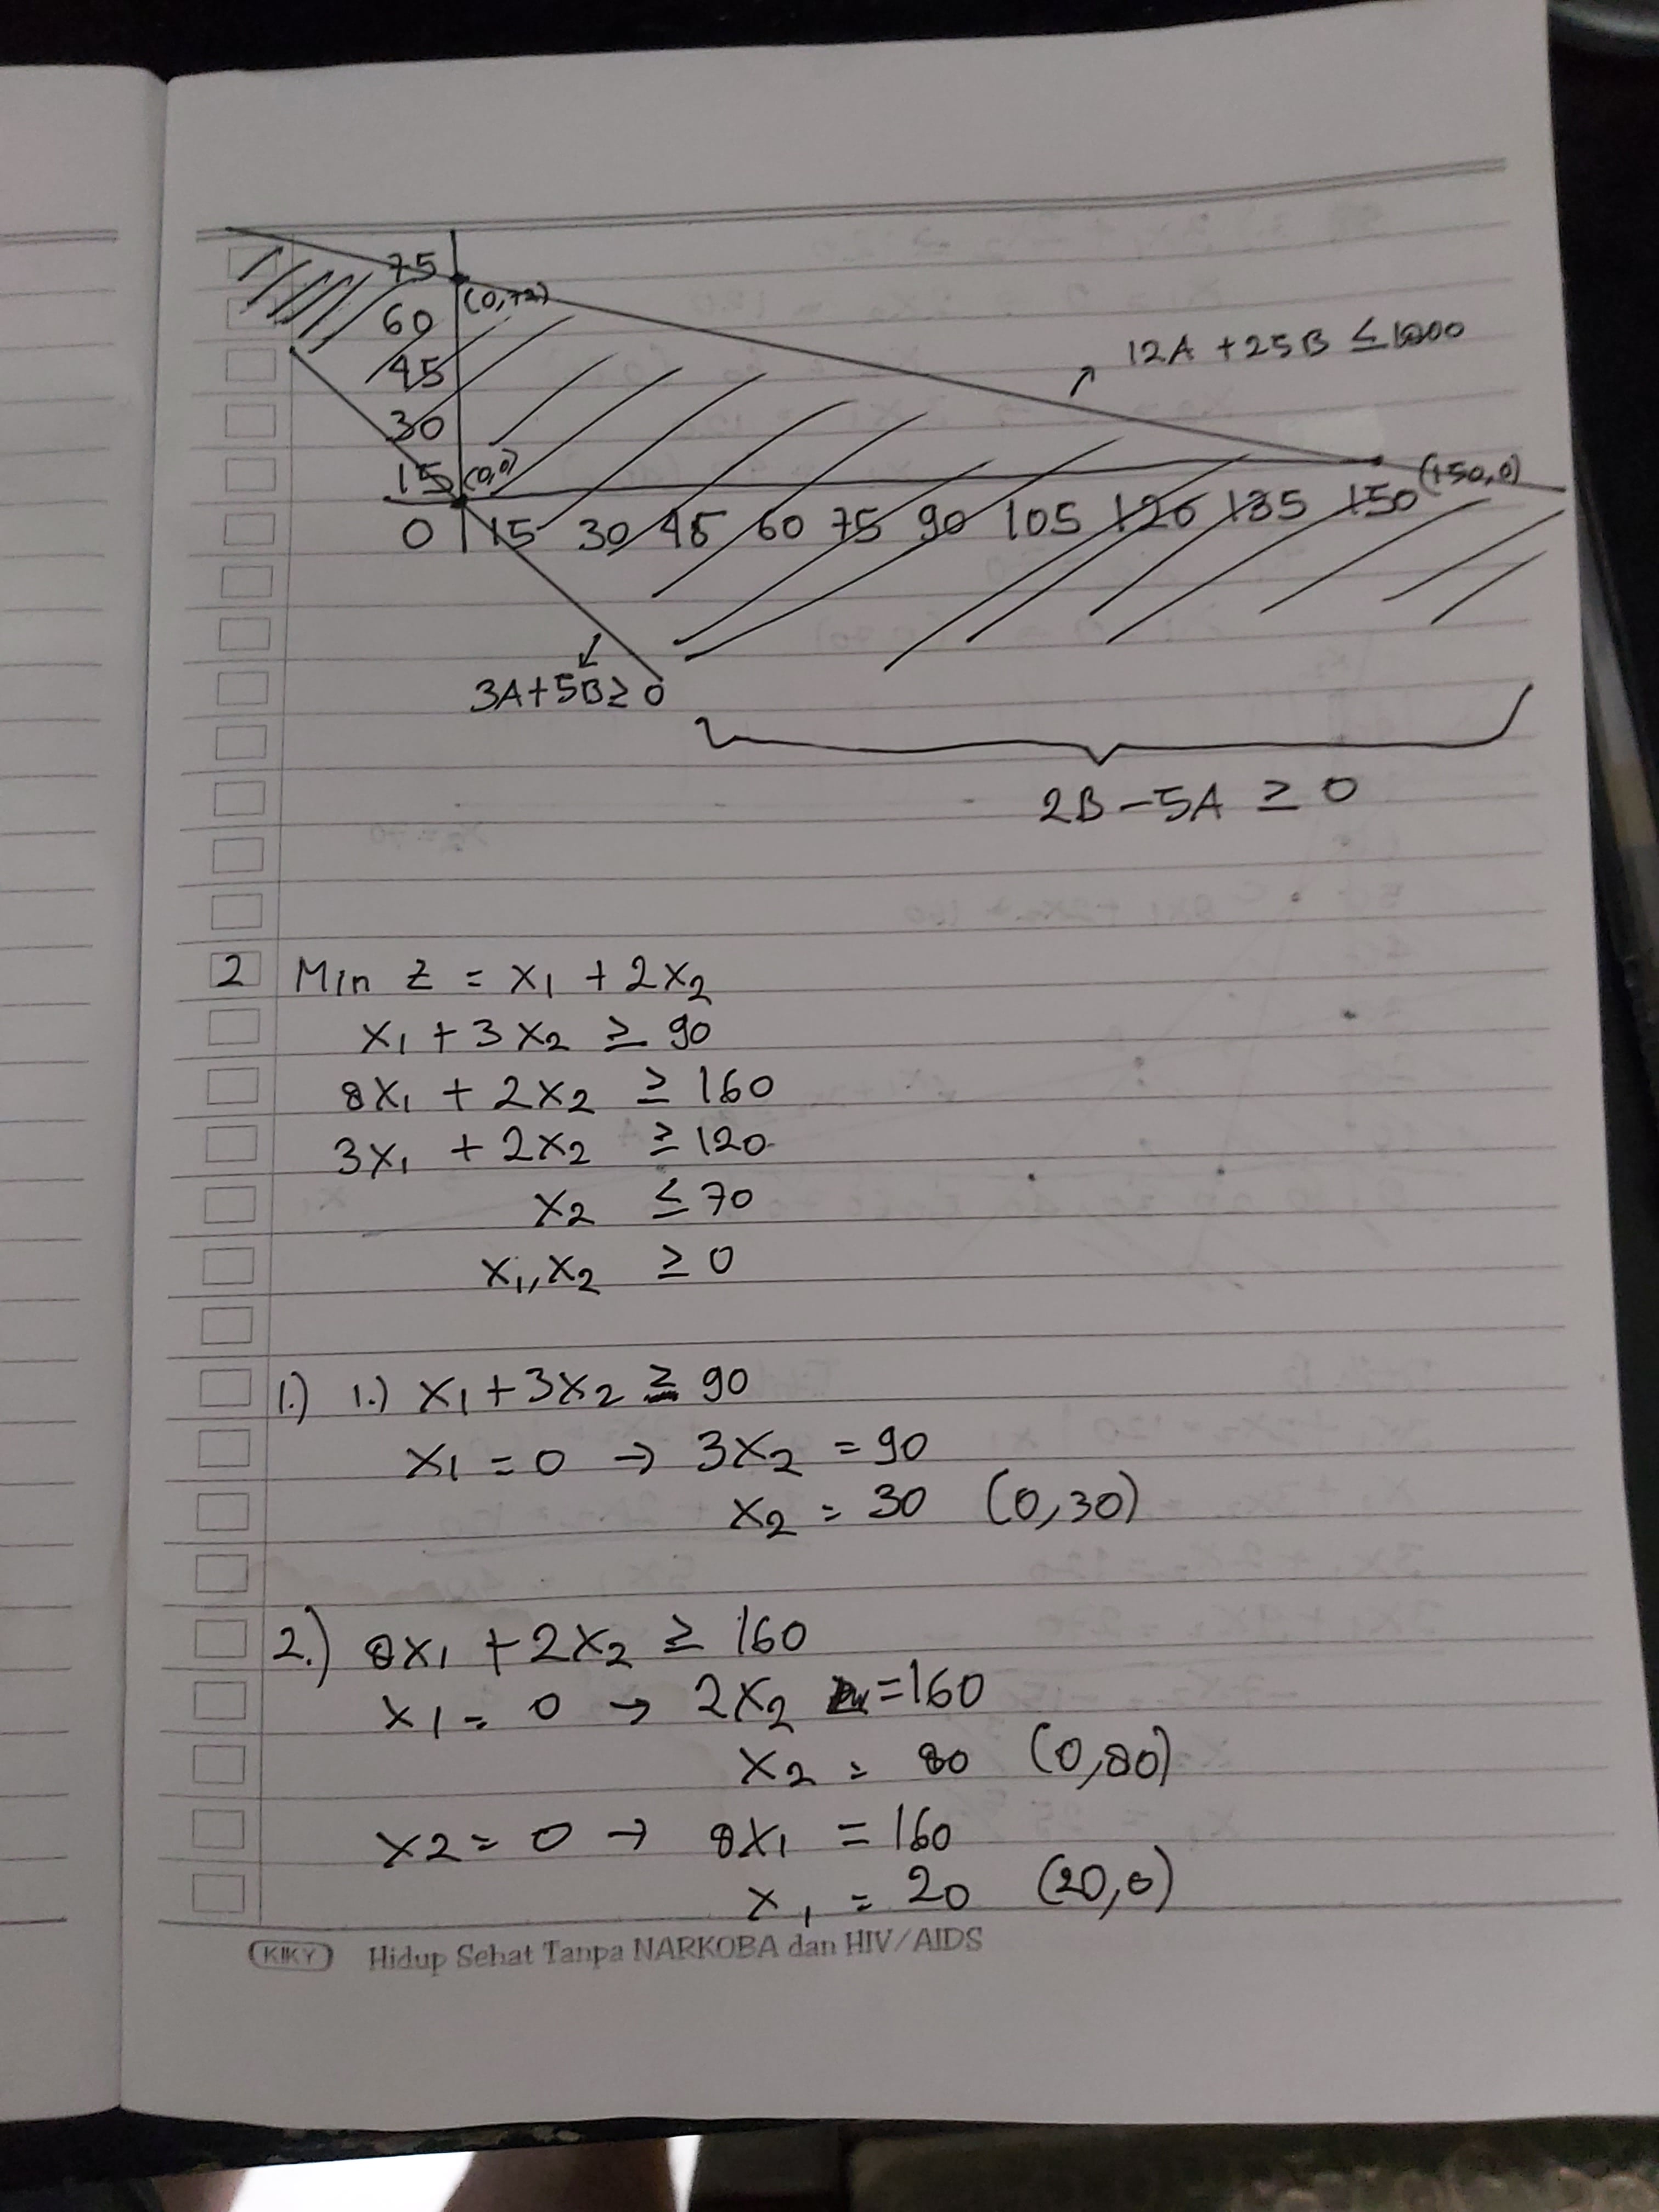 75
(0,72)
60
12A + 25B ≤ 1800
45
30
15 (0,0)
(150,0)
0 15 30 45 60 75 90 105 120 135 150
3A+5B ≥ 0
2B - 5A ≥ 0
2 Min z = x₁ + 2x₂
x₁ + 3x₂ ≥ 90
8x₁ + 2x₂ ≥ 160
3x₁ + 2x₂ ≥ 120
x₂ ≤ 70
x₁, x₂ ≥ 0
1.) 1.) x₁ + 3x₂ ≥ 90
x₁ = 0 → 3x₂ = 90
x₂ = 30 (0,30)
2.) 8x₁ + 2x₂ ≥ 160
x₁ = 0 → 2x₂ = 160
x₂ = 80 (0,80)
x2 = 0 → 8x₁ = 160
x₁ = 20 (20,0)
KIKY Hidup Sehat Tanpa NARKOBA dan HIV/AIDS